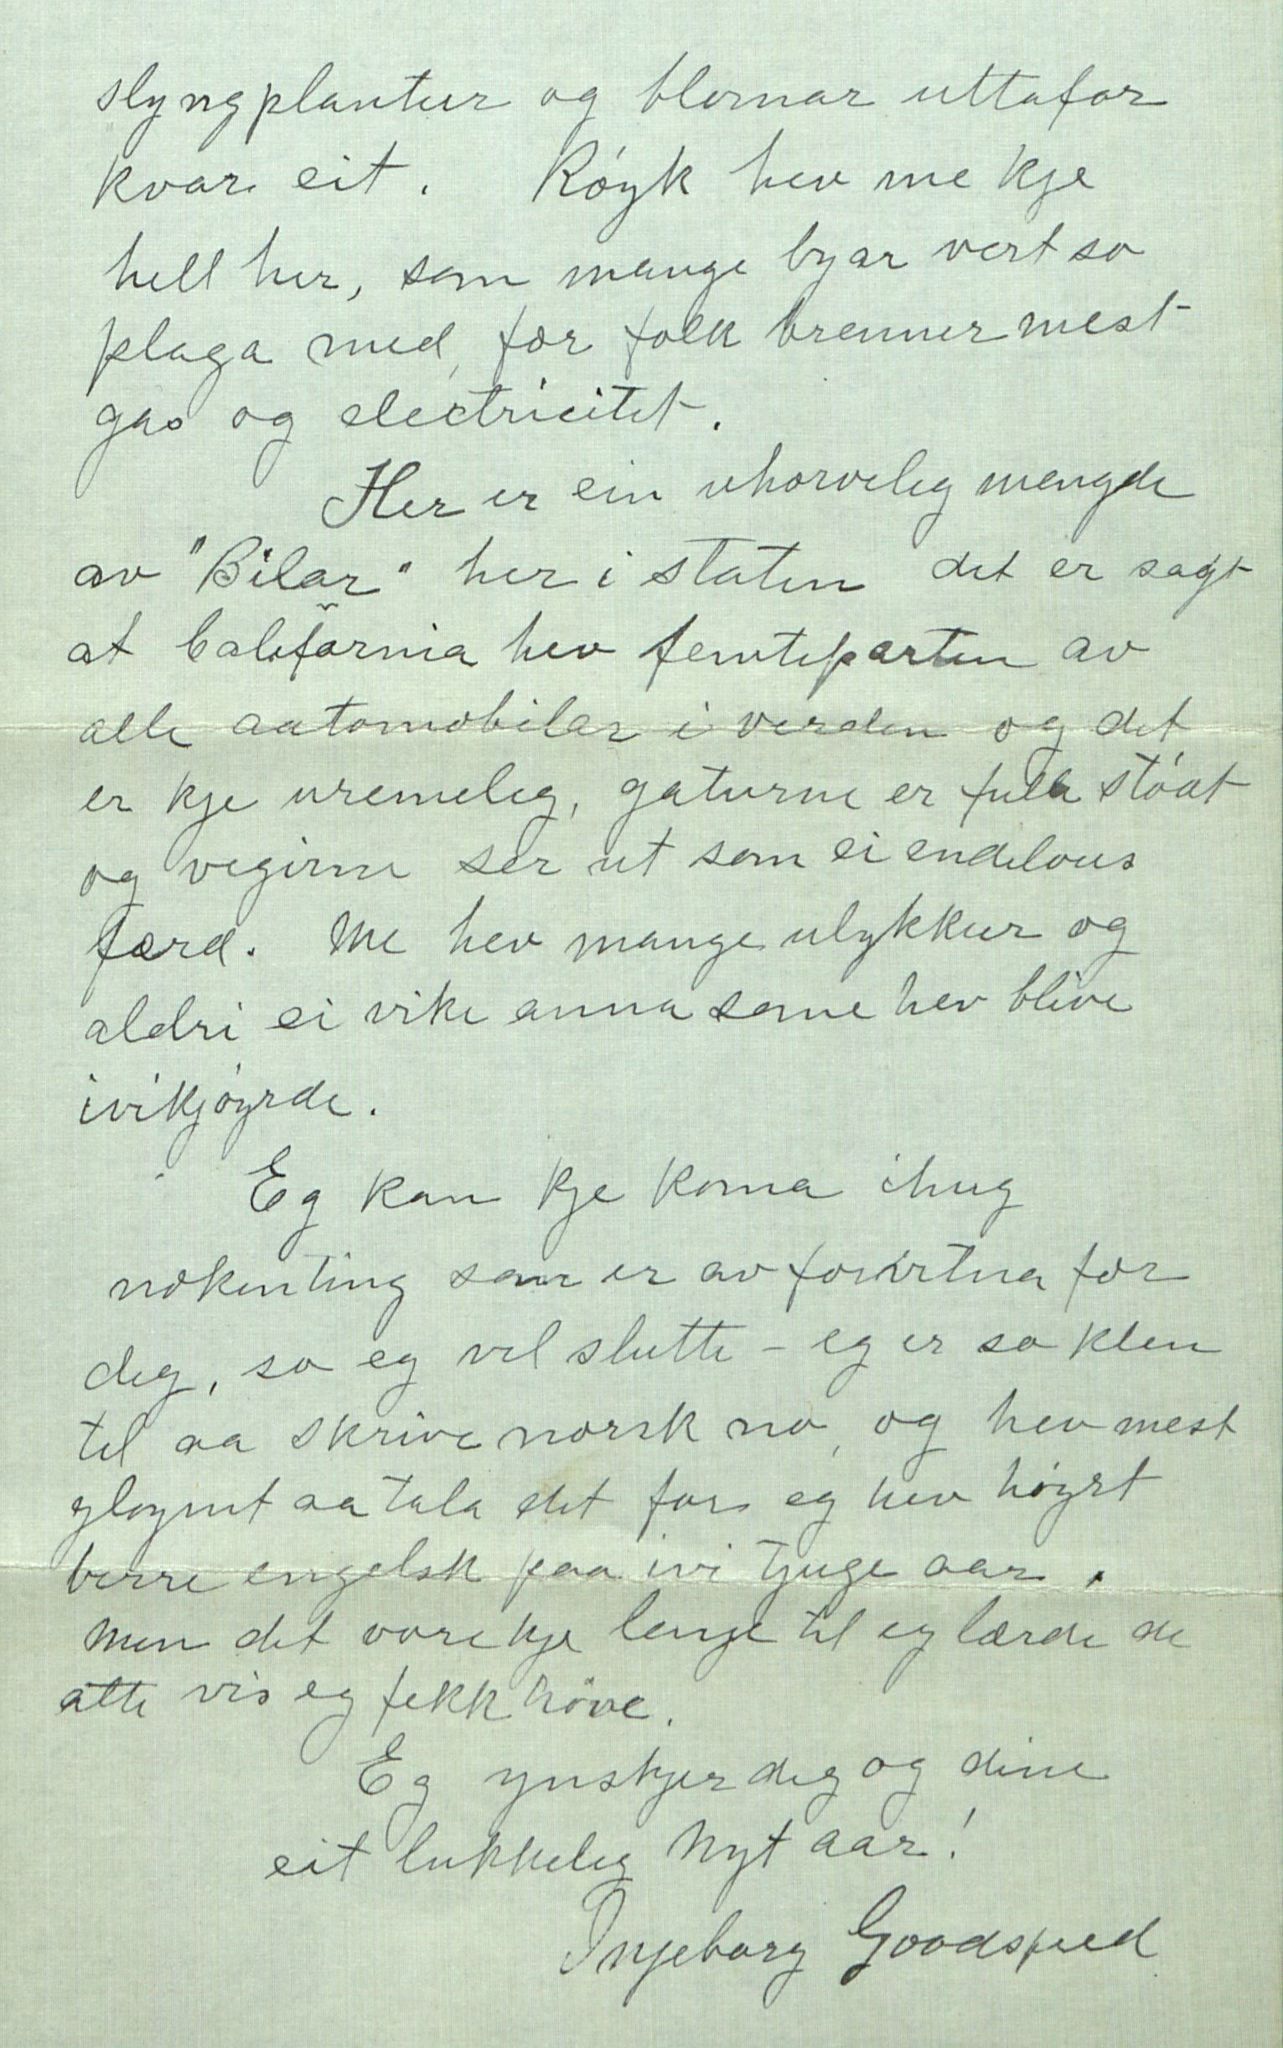 slyngplantur og blomar uttafor
kvar eit. Røyk hev me kje
hell her, som mange byar vert so
plaga med, for folk brenner mest
gas og electricitet.
Her er ein uhorveleg mengde
av "Bilar" her i staten det er sagt
at California hev femteparten av
alle automobilar i verden og det
er kje uremeleg, gaturne er fulla støat
og vegirne ser ut som ei endelous
færd. Me hev mange ulykkur og
aldri ei vike anna some hev blive
ivikjøyrde.
Eg kan kje koma ihug
nokenting som er av for
dig, so eg vel slutte - eg er so klen
til aa skrive norsk no, og hev mest
gløymt aa tala det for eg hev høyrt
berre engelsk paa ivi tjuge aar.
Men det vore kje lenge til eg lærde de
atte vis eg fekk høve.
Eg ynskjer dig og dine
eit lukkeleg Nyt aar!
Ingeborg Goodspeed